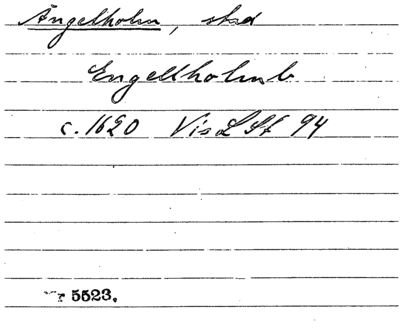 Ängelholm, stad
Engellholmb
c. 1620 Vis L St 94
Nr 5523.